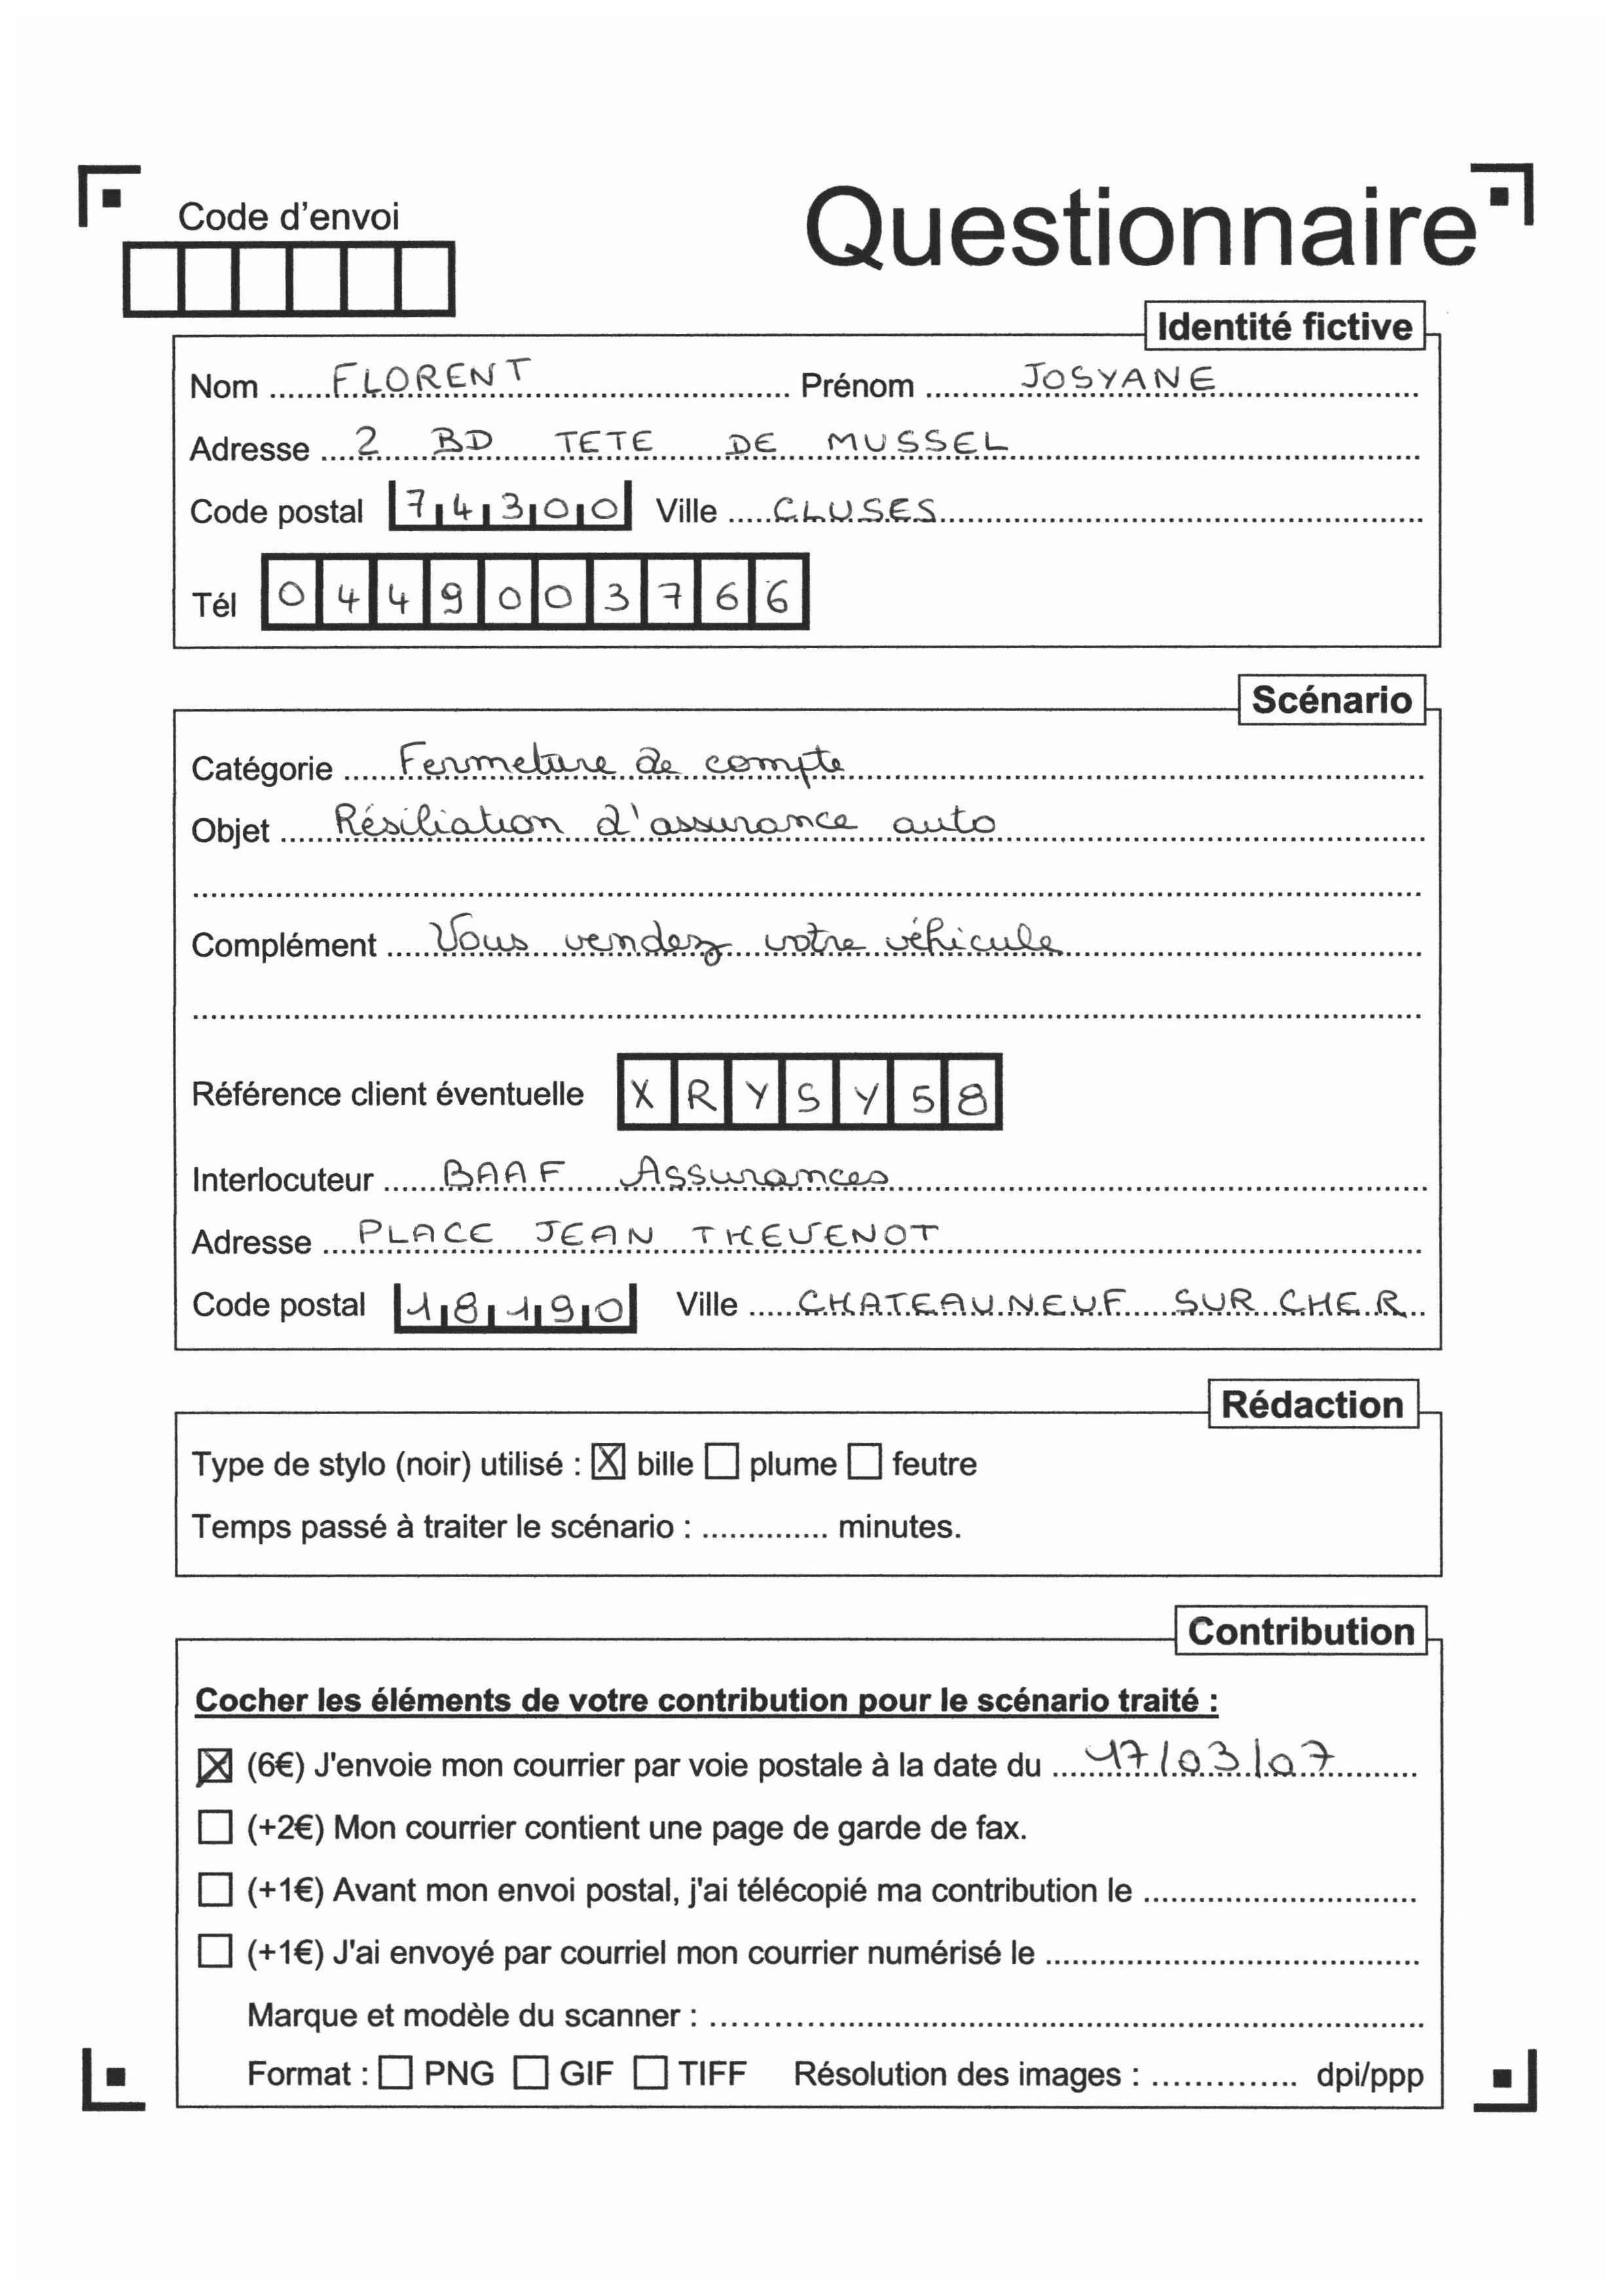 Code d'envoi
Questionnaire
Identité fictive
Nom ....... FLORENT ....... Prénom ....... JOSYANE .......
Adresse .... 2 BD TETE DE MUSSEL .......
Code postal 74300 Ville ..... CLUSES .......
Tél 0449003766
Scénario
Catégorie ..... Fermeture de compte .......
Objet ..... Résiliation d'assurance auto .......
Complément .... Vous vendez votre véhicule .......
Référence client éventuelle XRYSY58
Interlocuteur ...... BAAF Assurances .......
Adresse .... PLACE JEAN THEVENOT .......
Code postal 18190 Ville ..... CHATEAUNEUF SUR CHER ..
Rédaction
Type de stylo (noir) utilisé : ☒ bille ☐ plume ☐ feutre
Temps passé à traiter le scénario : .............. minutes.
Contribution
Cocher les éléments de votre contribution pour le scénario traité :
☒ (6€) J'envoie mon courrier par voie postale à la date du .... 17/03/07 .......
☐ (+2€) Mon courrier contient une page de garde de fax.
☐ (+1€) Avant mon envoi postal, j'ai télécopié ma contribution le ..............................
☐ (+1€) J'ai envoyé par courriel mon courrier numérisé le ........................................
Marque et modèle du scanner : ..............................................................................
Format : ☐ PNG ☐ GIF ☐ TIFF Résolution des images : ................ dpi/ppp